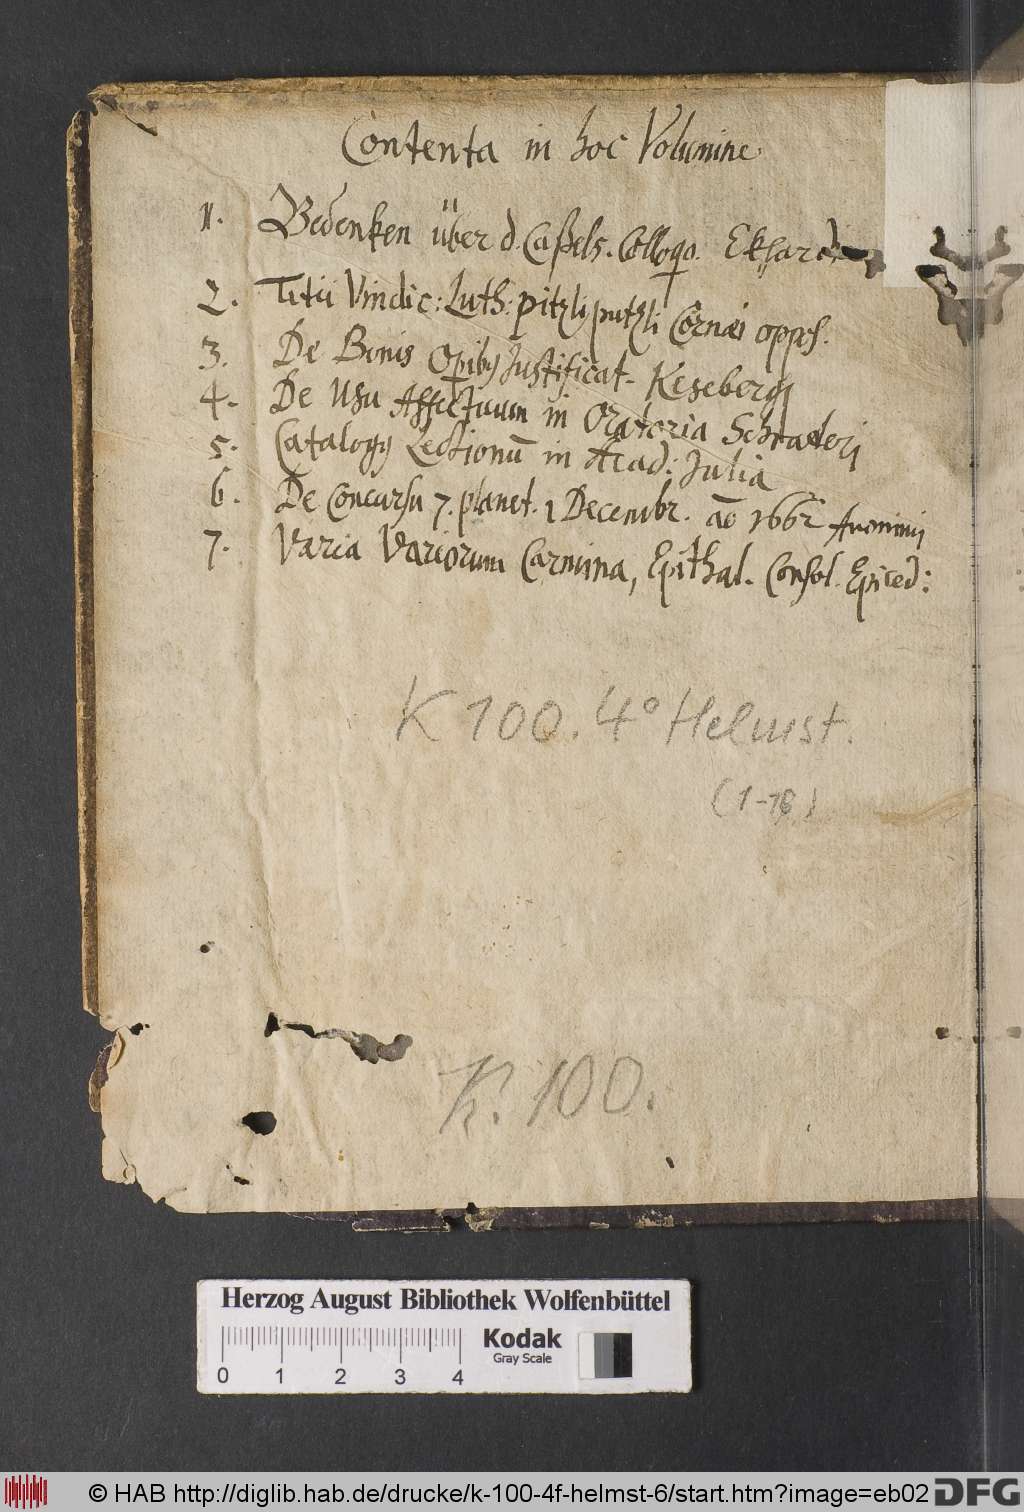 Contenta in hoc Volumine
1. Bedenken über d. Caßels. Colloqo. Ekhardi
2. Titii Vindic: Luth: pitzliputzli Cornæi oppos.
3. De Bonis Opibq Justificat. Kesebergi
4. De Usu Affectuum in Oratoria Schraderi
5. Catalogq Lectionū in Acad: Julia
6. De Concursu 7. planet. 1 Decembr. ao 1662 Anonimi
7. Varia Variorum Carmina, Epithal. Consol. Epiced:
K 100. 4° Helmst.
(1-18)
K. 100.
Herzog August Bibliothek Wolfenbüttel
0 1 2 3 4
Kodak
Gray Scale
© HAB http://diglib.hab.de/drucke/k-100-4f-helmst-6/start.htm?image=eb02
DFG